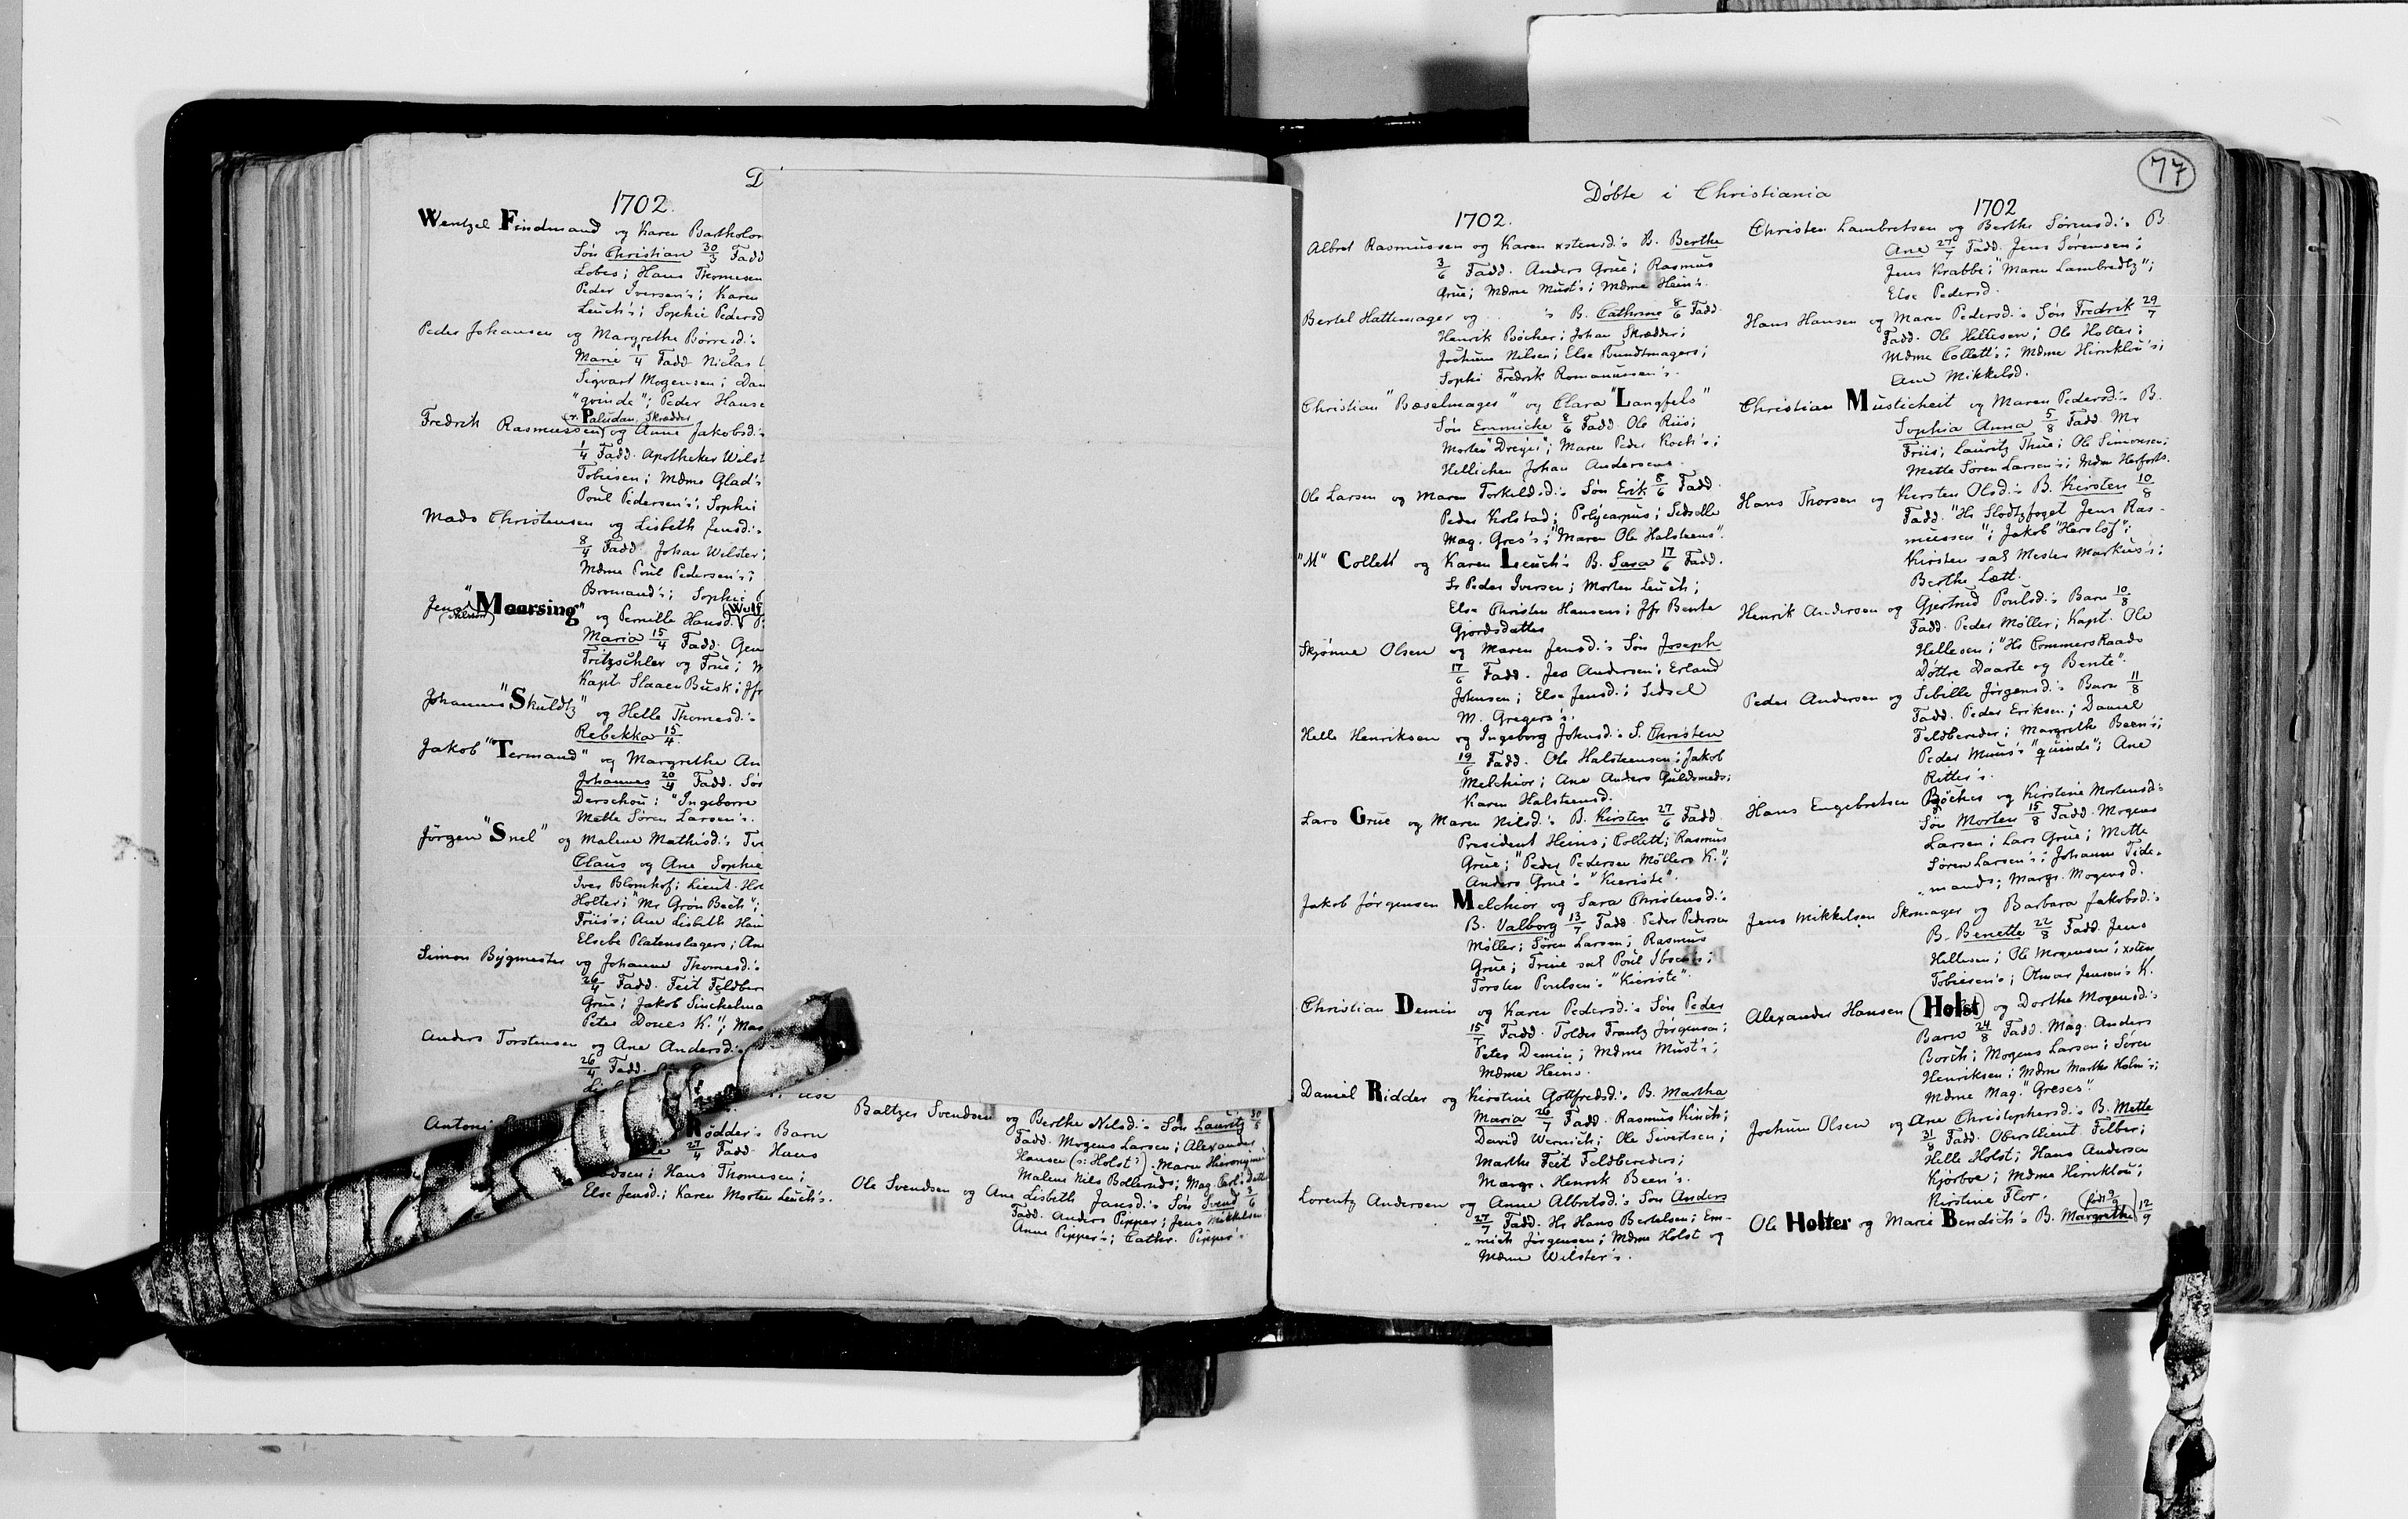 D
1702.
Wentzel Findmand og Karen Bartholom
Søn Christian 30/3 Fadd
Lobes; Hans Thomesen
Peder Iversen's; Karen
Leuch's; Sophie Pedersd
Peder Johansen og Margrethe Børresd.'s
Marie 1/4 Fadd Niclas
Sigvart Mogensen; Dan
"qvinde"; Peder Hanse
Paludan, Skrædder
Fredrik Rasmussen og Anne Jakobsd.'s
1/4 Fadd. Apotheker Wilst
Tobiesen; Mdme Glad's
Poul Pedersen's; Sophie
Mads Christensen og Lisbeth Jensd.'s
8/4 Fadd. Johan Wilster;
Mdme Poul Pedersen's;
Bromand's; Sophie
Jens "Maarsing" og Pernille Hansd. (Wulf
Maria 15/4 Fadd. Gen
Fritzschler og Frue; M
Kapt. Slaaen Busk; Jfr
Johannes "Skuldtz" og Helle Thomesd.'s
Rebekka 15/4.
Jakob "Termand" og Margrethe An
Johannes 20/4 Fadd. Sør
Derschou; "Ingeborre
Mette Søren Larsen's.
Jørgen "Snel" og Malene Mathisd.'s Tvi
Claus og Ane Sophie
Iver Blomhof; Lieut. Hol
Holter; "Mr Grøn Bech";
Friis's; Ane Lisbeth Han
Elsebe Platenslagers; An
Simon Bygmester og Johanne Thomesd.'s
26/4 Fadd. Feit Feldber
Grue; Jakob Sinckelma
Peter Dones K."; Mar
Anders Torstensen og Ane Andersd.'s
26/4 Fadd.
Antoni
Rødder's Barn
27/4 Fadd. Hans
dsen; Hans Thomesen;
Else Jensd.; Karen Morten Leuch's.
Baltzer Svendsen og Berthe Nilsd.'s Søn Lauritz 30/5
Fadd. Mogens Larsen; Alexander
Hansen (ɔ: Holst's); Maren Hieronymi
Malene Nils Bollerud's; Mag. Carl's datt
Ole Svendsen og Ane Lisbeth Jansd.'s Søn Svend 3/6
Fadd. Anders Pipper; Jens Mikkelsen
Anne Pipper's; Cathr. Pipper's
77
Døbte i Christiania
1702.
Albret Rasmussen og Karen xstensd.'s B. Berthe
3/6 Fadd. Anders Grue; Rasmus
Grue; Mdme Must's; Mdme Hein's.
Bertel Hattemager og . . . 's B. Cathrine 8/6 Fadd.
Henrik Bøcker; Johan Skrædder;
Jochum Nilsen; Else Bundtmagers;
Sophi Fredrik Romanussen's.
Christian "Bæselmager" og Clara "Langfels"
Søn Emmicke 8/6 Fadd. Ole Riis;
Morten "Dreyer"; Maren Peder Koch's;
Hellichen Johan Andersens.
Ole Larsen og Maren Torkildsd.'s Søn Erik 8/6 Fadd.
Peder Kolstad; Polycarpus; Sidselle
Mag. Gres's; "Maren Ole Halsteens".
"M" Collett og Karen Leuch's B. Sara 17/6 Fadd.
Sr Peder Iversen; Morten Leuch;
Else Christen Hansens; Jfr Bente
Gjordsdatter
Skjønne Olsen og Maren Jensd.'s Søn Joseph
17/6 Fadd. Jes Andersen; Erland
Johnsen; Else Jensd.; Sidsel
M. Gregers's.
Helle Henriksen og Ingeborg Johnsd.'s S. Christen
19/6 Fadd. Ole Halsteensen; Jakob
Melchior; Ane Anders Guldsmeds;
Karen Halsteensd.
Lars Grue og Maren Nilsd.'s B. Kirsten 27/6 Fadd.
President Heins; Collett; Rasmus
Grue; "Peder Pedersen Møllers K.";
Anders Grue's "Kieriste".
Jakob Jørgensen Melchior og Sara Christensd.'s
B. Valborg 13/7 Fadd. Peder Pedersen
Møller; Søren Larsen; Rasmus
Grue; Trine sal Poul Ibsen's;
Torsten Poulsen's "Kieriste".
Christian Demin og Karen Pedersd.'s Søn Peder
15/7 Fadd. Tolder Frantz Jørgensen;
Peter Demin; Mdme Must's;
Mdme Heins.
Daniel Ridder og Kirstine Gottfredsd.'s B. Martha
Maria 26/7 Fadd. Rasmus Kinch;
David Wernich; Ole Sivertsen;
Marthe Feit Feldbereders;
Margr. Henrik Been's.
Lorentz Andersen og Anne Albretsd.'s Søn Anders
27/7 Fadd. Hr Hans Bertelsen; Em-
mich Jørgensen; Mdme Holst og
Mdme Wilster's.
1702
Christen Lambretsen og Berthe Sørensd.'s B
Ane 27/7 Fadd. Jens Sørensen;
Jens Krabbe; "Maren Lambredtz";
Else Pedersd.
Hans Hansen og Maren Pedersd.'s Søn Fredrik 29/7
Fadd. Ole Hellesen; Ole Holter;
Mdme Collett's; Mdme Hirnklou's;
Ane Mikkelsd.
Christian Musticheit og Maren Pedersd.'s B.
Sophia Anna 5/8 Fadd. Mr
Friis; Lauritz Thue; Ole Simonsen;
Mette Søren Larsen's; Mdm Herforts.
Hans Thorsen og Kirsten Olsd.'s B. Kirsten 10/8
Fadd. "Hr Slodtzfoget Jens Ras-
mussen"; Jakob "Hersløf";
Kirsten sal Mester Markus's;
Berthe Lætt.
Henrik Andersen og Gjertrud Poulsd.'s Barn 10/8
Fadd. Peder Møller; Kapt. Ole
Hellesen; "Hr CommersRaads
Døttre Daarte og Bente".
Peder Andersen og Sibille Jørgensd.'s Barn 11/8
Fadd. Peder Eriksen; Daniel
Feldbereder; Margrethe Been's;
Peder Muus's "quinde"; Ane
Ritter's.
Hans Engebretsen Bøcker og Kirstine Mortensd.'s
Søn Morten 15/8 Fadd. Mogens
Larsen; Lars Grue; Mette
Søren Larsen's; Johanne Tide-
mands; Margr. Mogensd.
Jens Mikkelsen Skomager og Barbara Jakobsd.'s
B. Benette 22/8 Fadd. Jens
Hellesen; Ole Mogensen; xsten
Tobiesen's; Otmar Jensen's K.
Alexander Hansen (Holst) og Dorthe Mogensd.'s
Barn 24/8 Fadd. Mag. Anders
Borch; Mogens Larsen; Søren
Henriksen; Mdme Marthe Holm's;
Mdme Mag. "Greses".
Jochum Olsen og Ane Christophersd.'s B. Mette
31/8 Fadd. Oberstlieut. Felber;
Helle Holst; Hans Andersen
Kjørboe; Mdme Hirnklou;
Kirstine Flor.
Ole Holter og Marie Bendich's B. Margrethe (født 9/9) 12/9